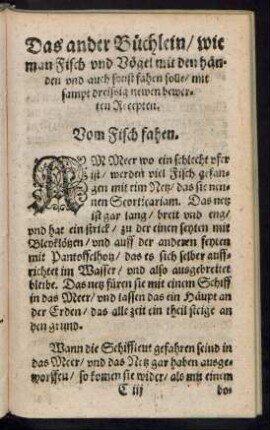 Das ander Büchlein/ wie
man Fisch vnd Vögel mit den hän-
den vnd auch sonst fahen solle/ mit
sampt dreissig newen bewer-
ten Recepten.
Vom Fisch fahen.
AM Meer wo ein schlecht vfer
ist/ werden viel Fisch gefan-
gen mit eim Netz/ das sie nen-
nen Scorticariam. Das netz
ist gar lang/ breit vnd eng/
vnd hat ein strick/ zu der einen seyten mit
Bleyklötzen/ vnd auff der anderen seyten
mit Pantoffelholtz/ das es sich selber auff-
richtet im Wasser/ vnd also außgebreitet
bleibe. Das netz füren sie mit einem Schiff
in das Meer/ vnd lassen das ein Häupt an
der Erden/ das alle zeit ein theil steige an
den grund.
Wann die Schiffleut gefahren seind in
das Meer/ vnd das Netz gar haben ausge-
worffen/ so komen sie wider/ als mit einem
C iij bo-